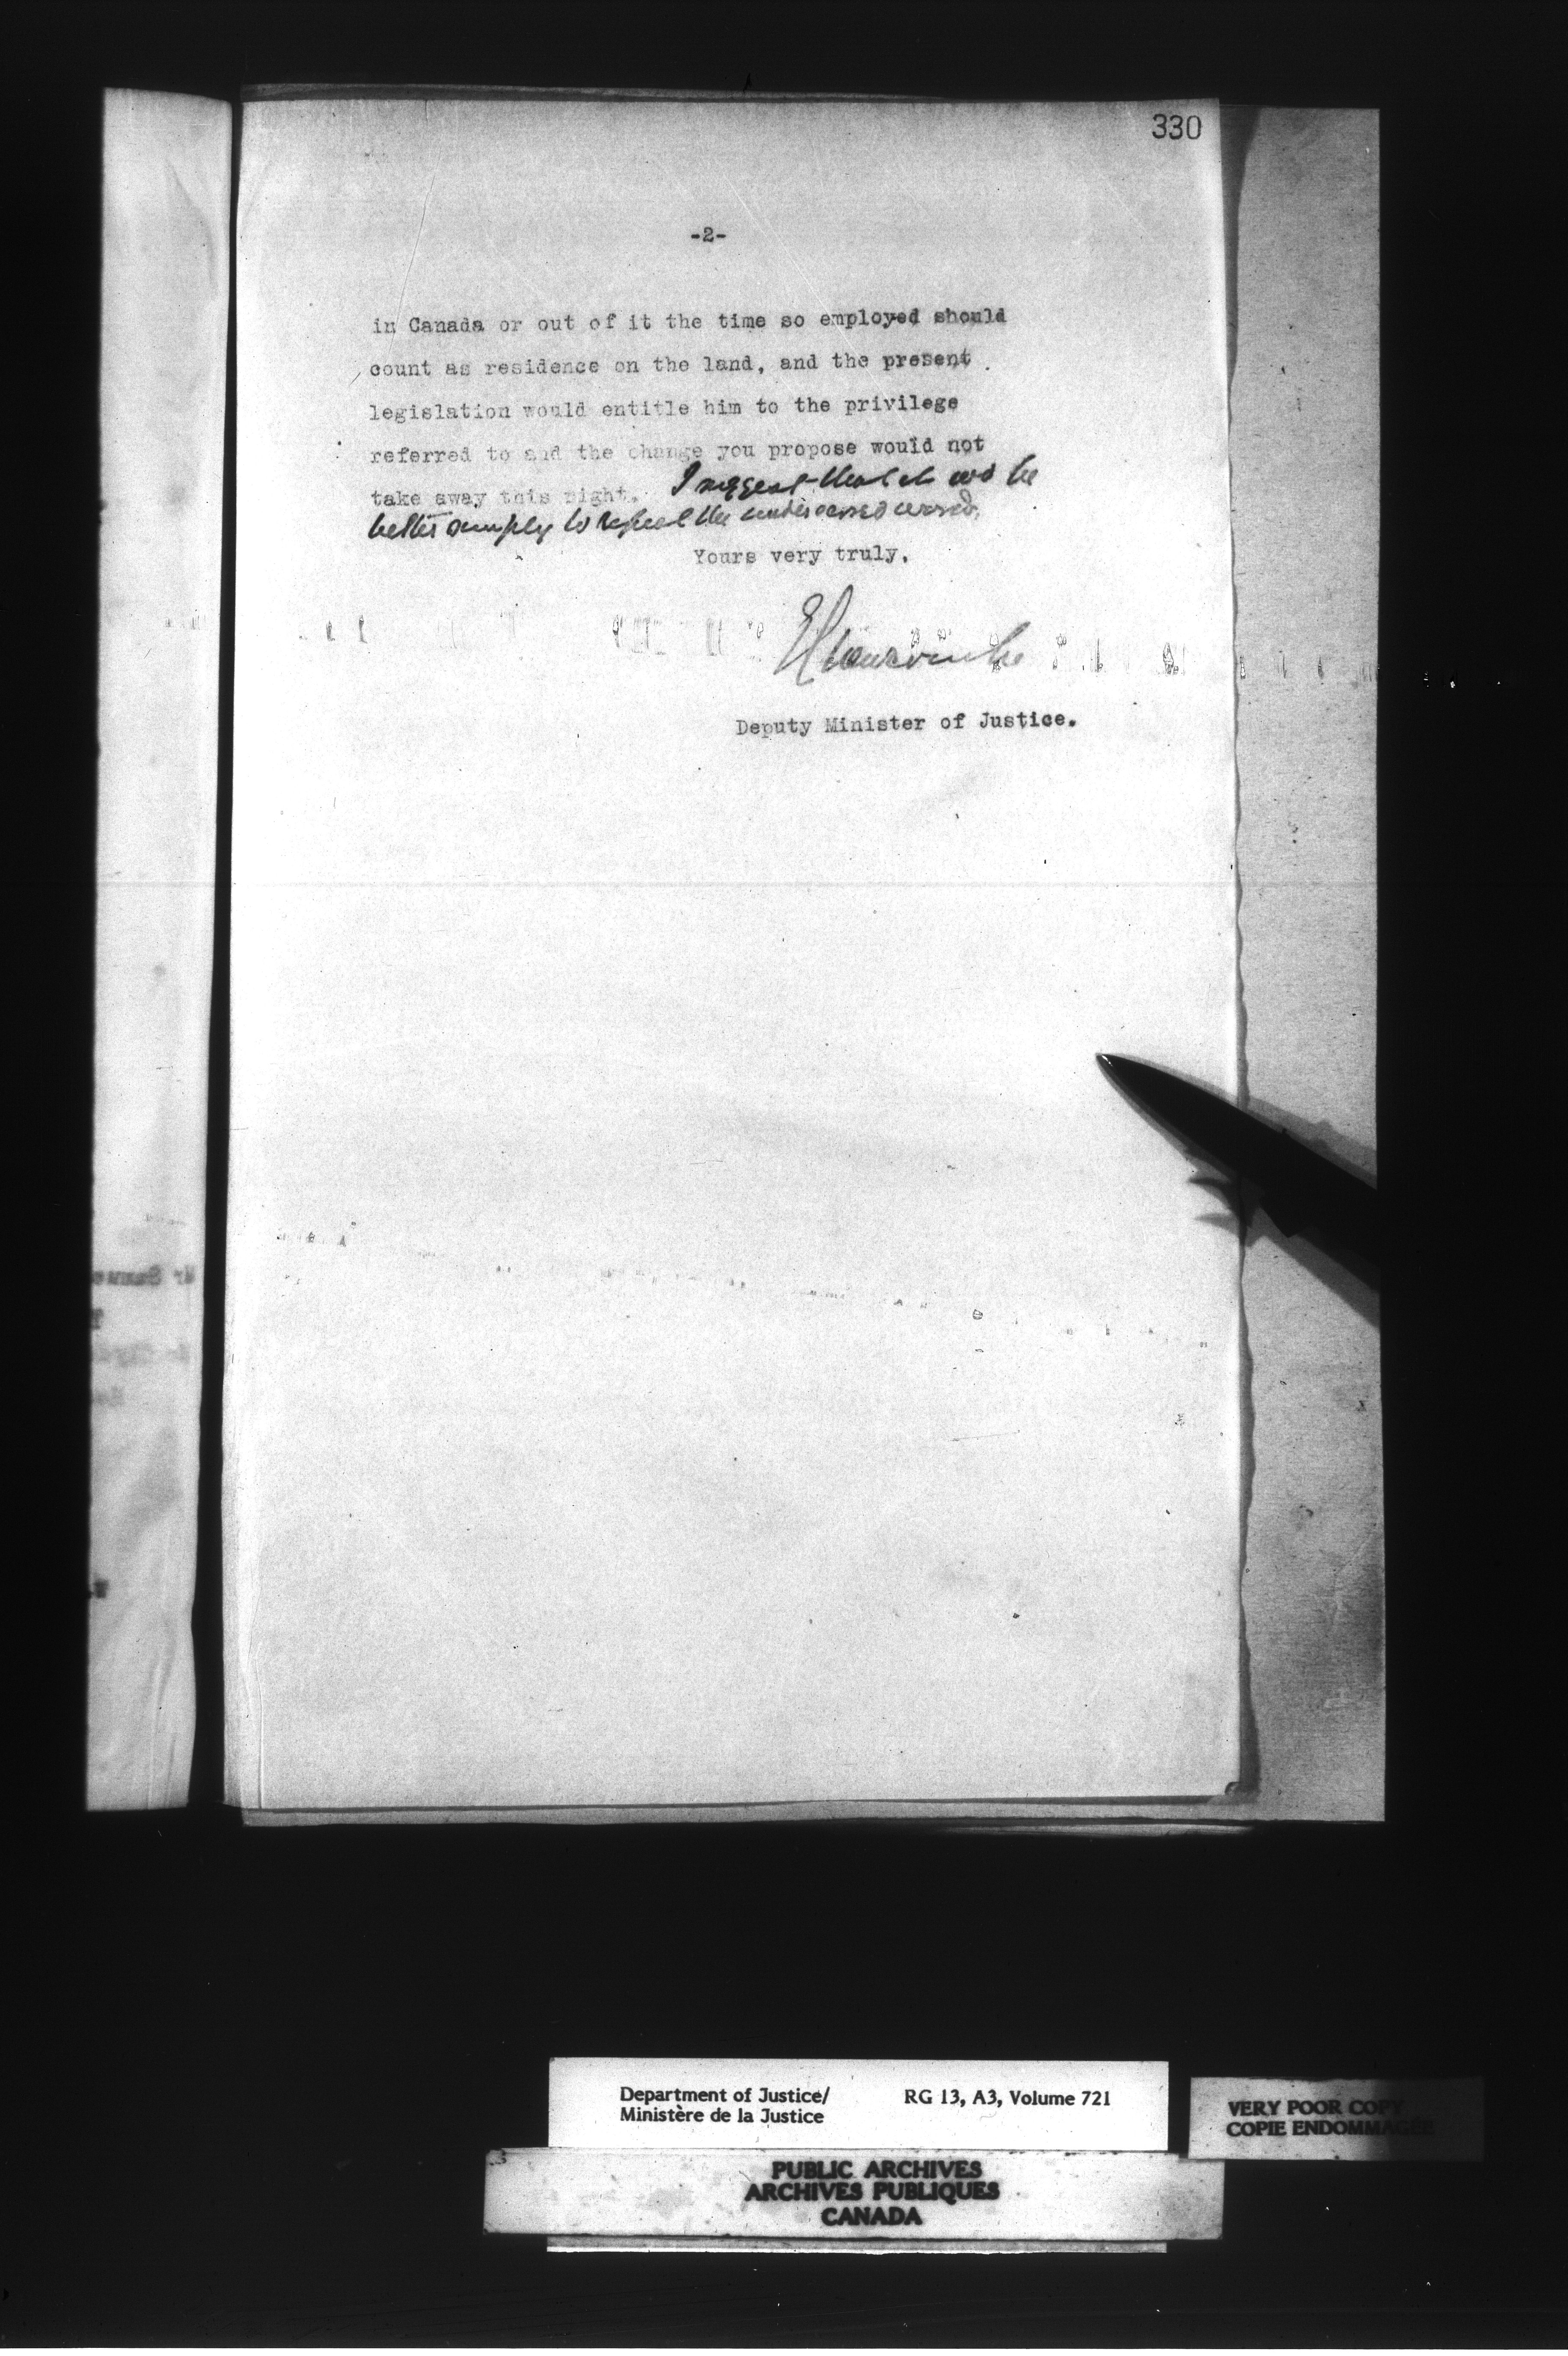 330
-2-
in Canada or out of it the time so employed should
count as residence on the land, and the present
legislation would entitle him to the privilege
referred to and the change you propose would not
take away this right. I suggest that it wd be
better simply to repeal the underscored words.
Yours very truly,
Deputy Minister of Justice.
Department of Justice/
Ministère de la Justice
RG 13, A3, Volume 721
VERY POOR COPY
COPIE ENDOMMAGÉE
PUBLIC ARCHIVES
ARCHIVES PUBLIQUES
CANADA